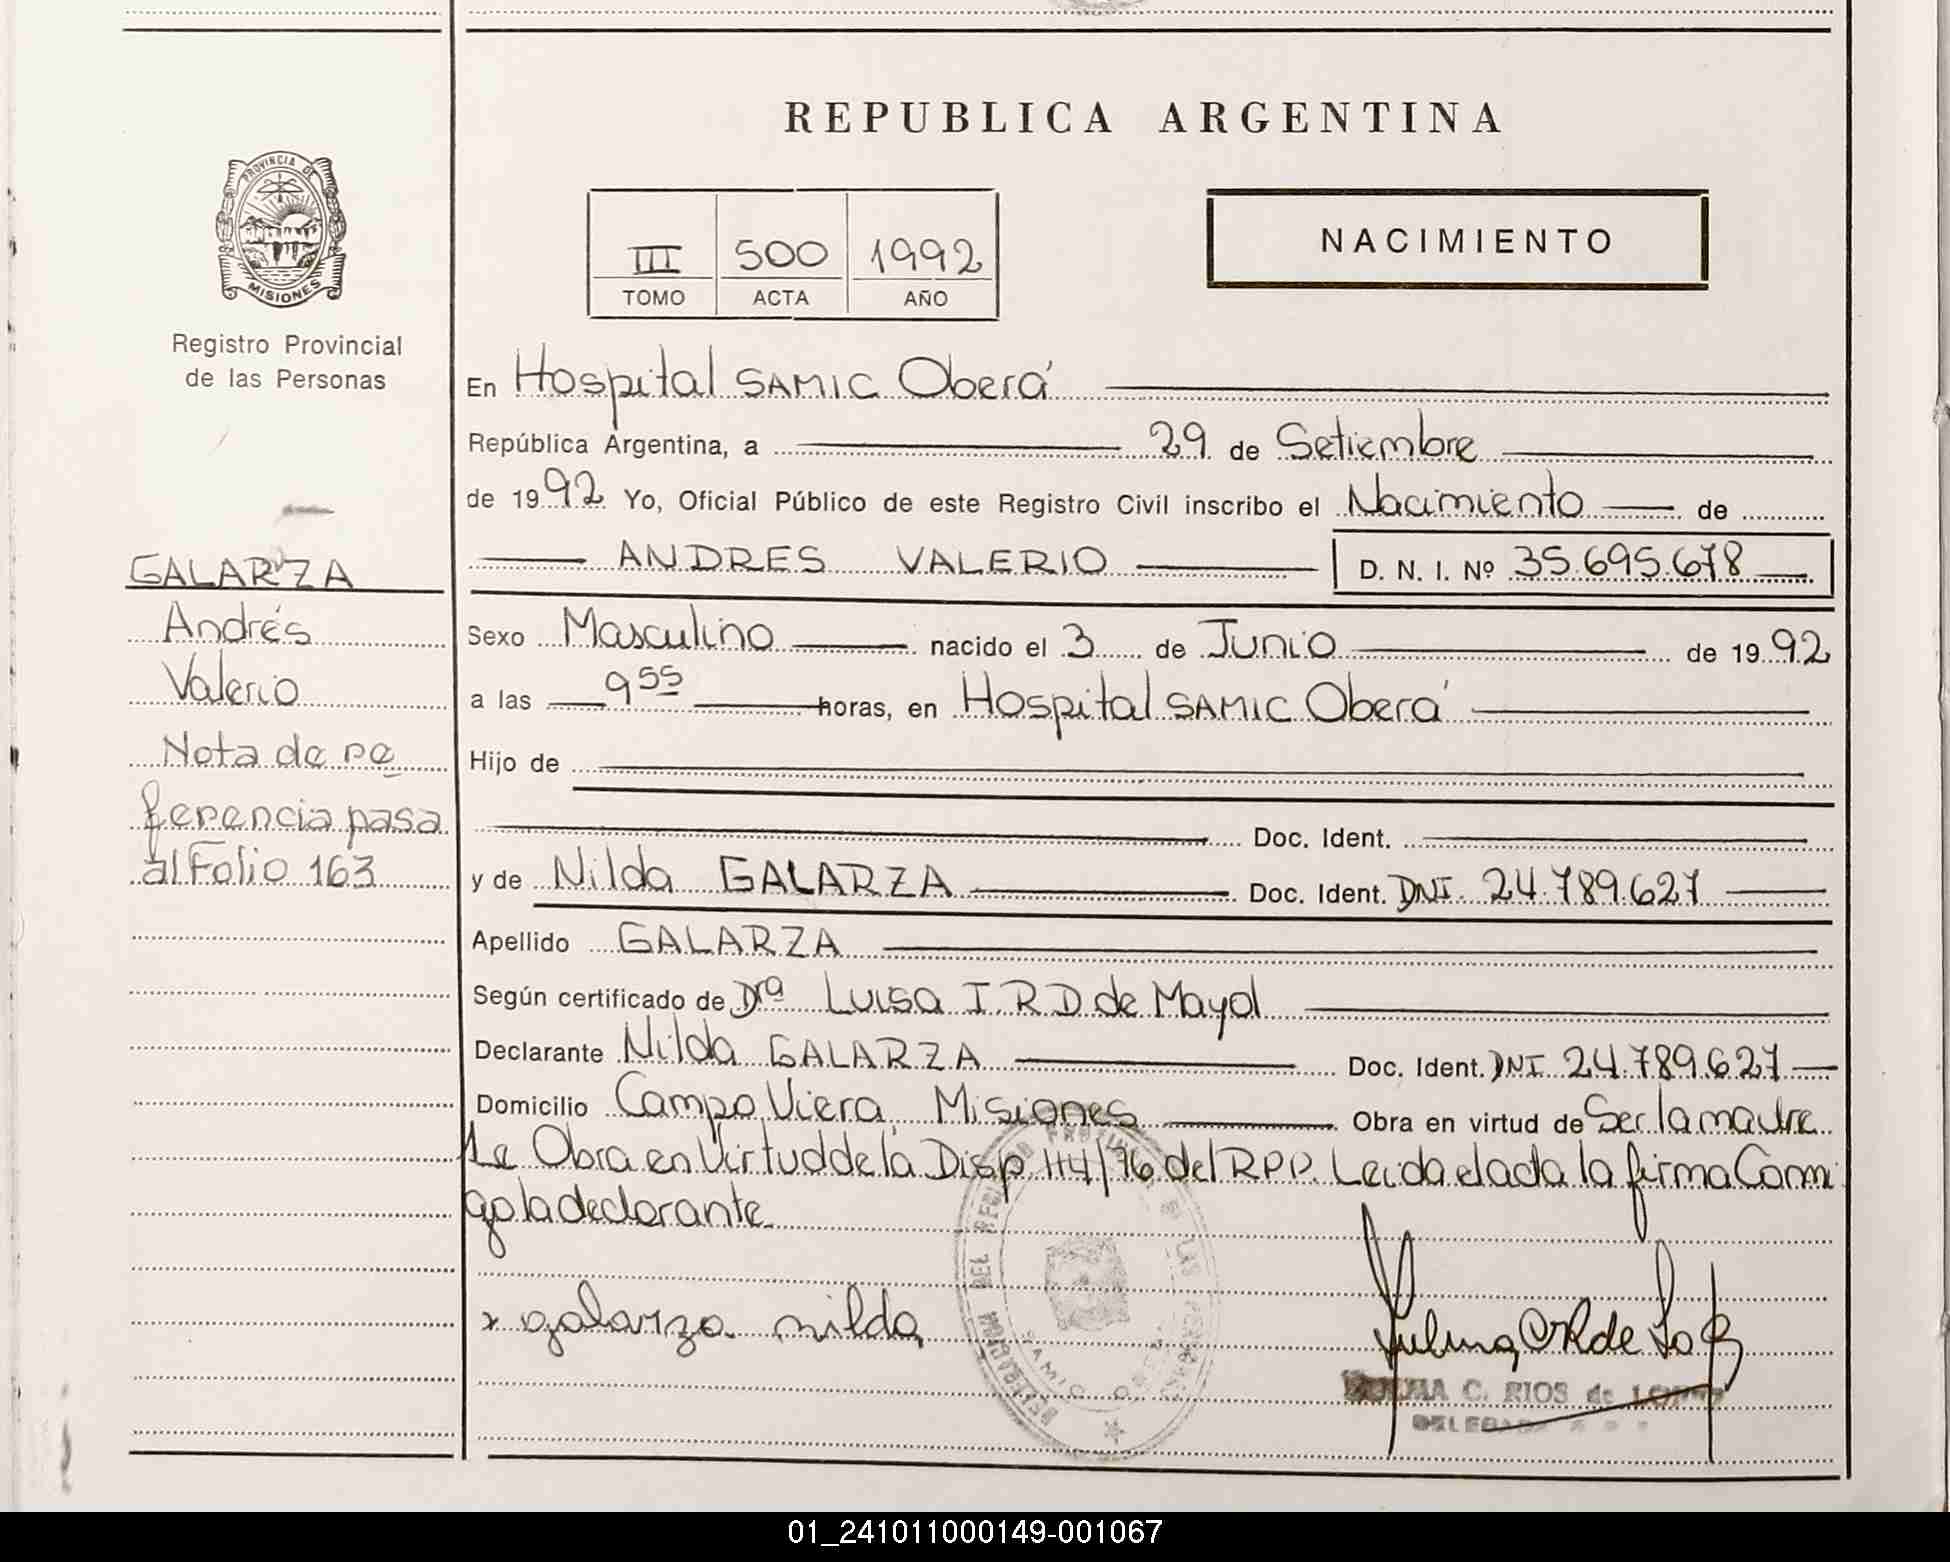 REPUBLICA ARGENTINA
PROVINCIA DE
MISIONES
Registro Provincial
de las Personas
III 500 1992
TOMO ACTA AÑO
NACIMIENTO
En Hospital SAMIC Oberá
República Argentina, a 29 de Setiembre
de 1992 Yo, Oficial Público de este Registro Civil inscribo el Nacimiento de
ANDRES VALERIO D. N. I. Nº 35.695.678
GALARZA
Andrés
Valerio
Nota de re
ferencia pasa
al Folio 163
Sexo Masculino nacido el 3 de Junio de 1992
a las 9 55 horas, en Hospital SAMIC Oberá
Hijo de
Doc. Ident.
y de Nilda GALARZA Doc. Ident. DNI. 24.789.627
Apellido GALARZA
Según certificado de Drª Luisa I.R.D. de Mayol
Declarante Nilda GALARZA Doc. Ident. DNI 24.789.627
Domicilio Campo Viera, Misiones Obra en virtud de Ser la madre
Le Obra en Virtud de la Disp. 114/76 del RPP. Leida el acta la firma Conmi
go la declarante
x galarza nilda
C. RIOS de LOPEZ
01_241011000149-001067